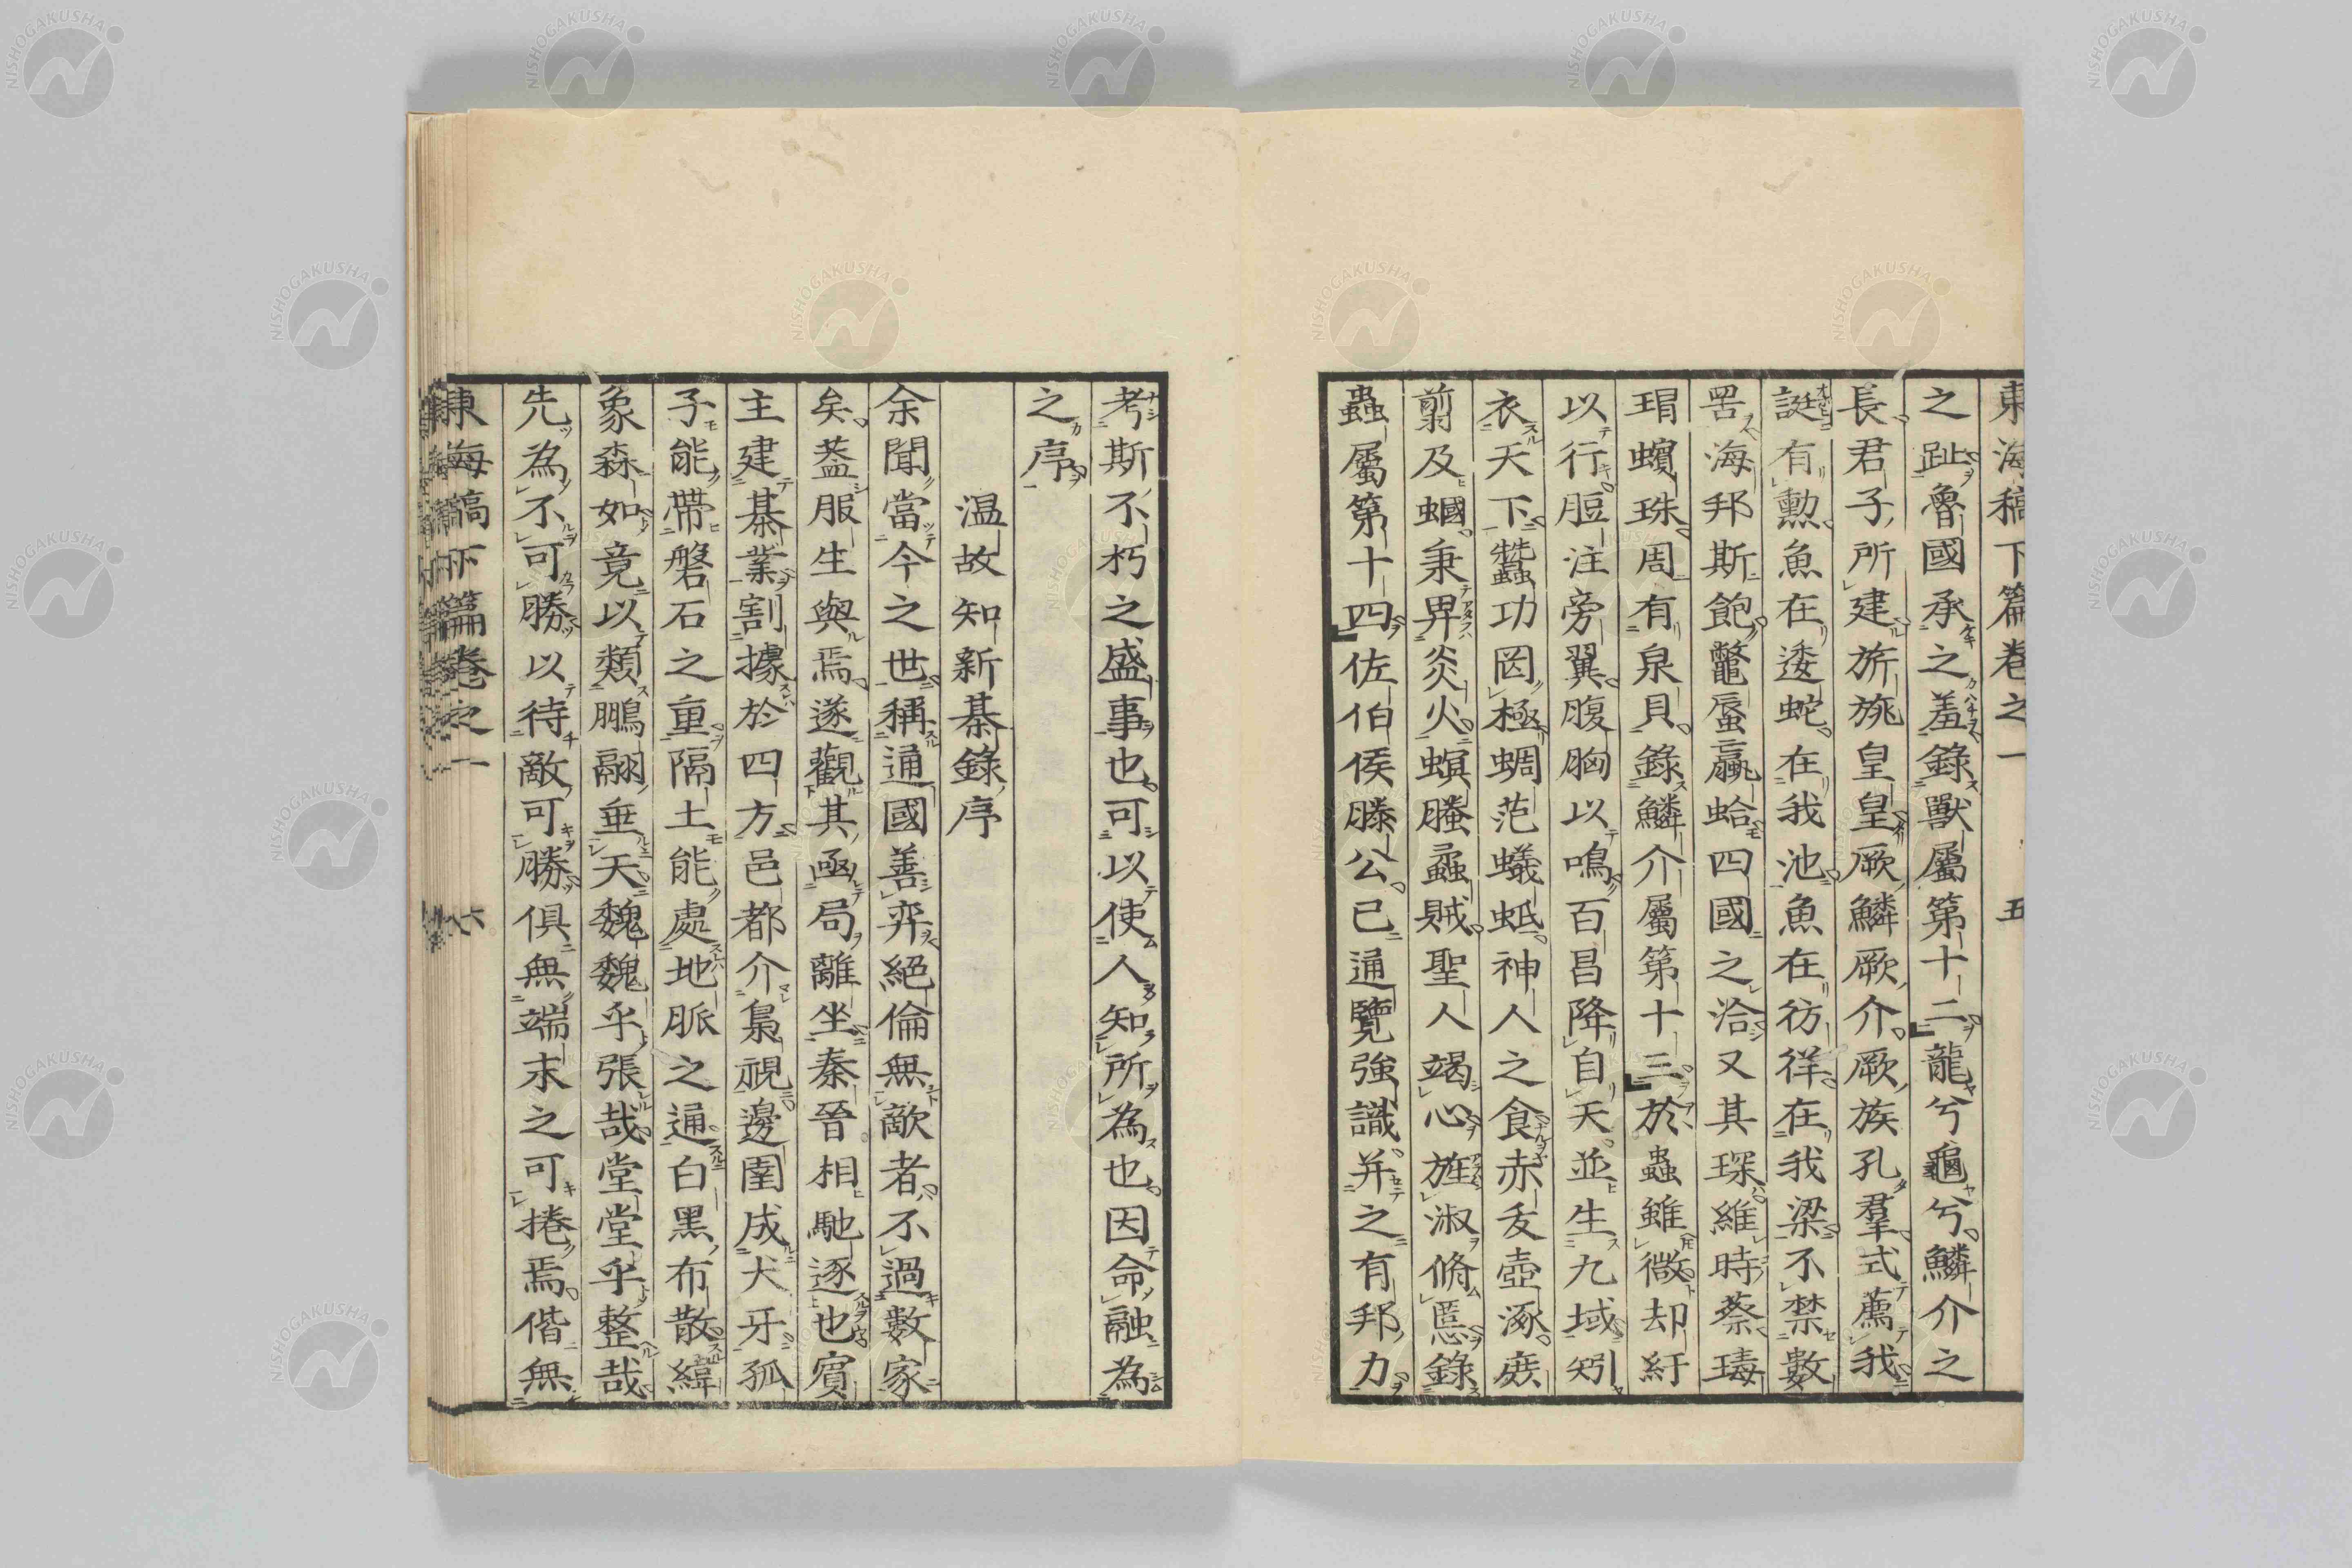 東海稿下篇卷之一 五
之趾魯國承之羞錄獸屬第十二龍兮龜兮鱗介之
長君子所建旂旐皇皇厥鱗厥介厥族孔羣式薦我
誕有勳魚在逶蛇在我池魚在彷徉在我梁不禁數
罟海邦斯飽鼈蜃蠃蛤四國之洽又其琛維時蔡瑇
瑁蠙珠周有泉貝錄鱗介屬第十三於蟲雖微却紆
以行脰注旁翼腹胸以鳴百昌降自天並生九域矧
衣天下蠶功罔極蜩范蟻蚳神人之食赤犮壺涿庶
翦及蟈秉畀炎火螟螣蟊賊聖人竭心旌淑脩慝錄
蟲屬第十四佐伯侯滕公已通覽強識并之有邦力
考斯不朽之盛事也可以使人知所為也因命融為
之序
温故知新棊錄序
余聞當今之世稱通國善弈絕倫無敵者不過數家
矣蓋服生與焉遂觀其凾局離坐秦晉相馳逐也賓
主建棊業割據於四方邑都介梟視邊圉成犬牙孤
子能帶磐石之重隔土能處地脈之通白黑布散緯
象森如竟以類鵬翮垂天魏魏乎張哉堂堂乎整哉
先為不可勝以待敵可勝俱無端末之可捲焉偕無
東海稿下篇卷之一 六
NISHOGAKUSHA